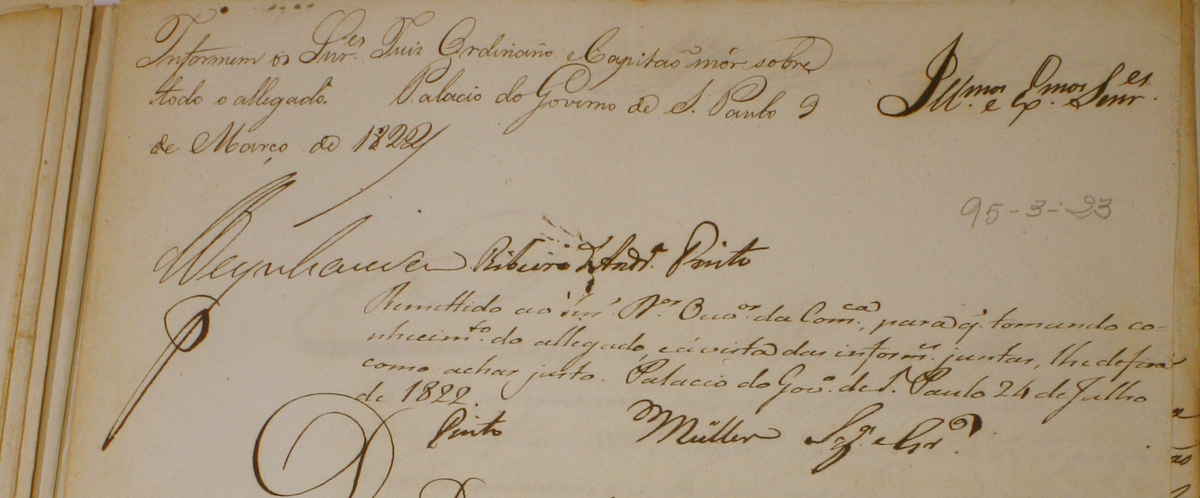 Informem os Snr.es Juiz Ordinario e Capitaõ mór sobre
todo o allegado. Palacio do Governo de S. Paulo 9
de Março de 1822
Ill.mos e Ex.mos Senr.es
95-3-23
Oeynhausen Ribeiro d'Andr.a Pinto
P
Remettido ao Snr. D.or Ouv.or da Com.ca, para q. tomando co-
nhecim.to do allegado, e á vista das inform.es juntas, lhe defira
como achar justo. Palacio do Gov.o de S. Paulo 24 de Julho
de 1822.
Pinto Müller